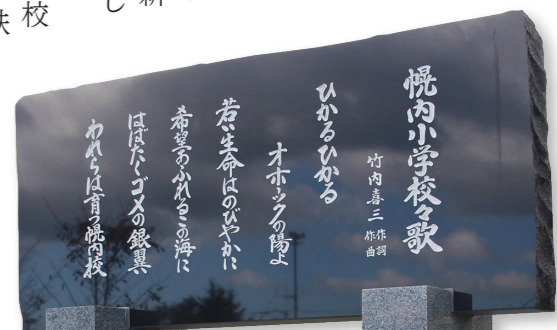 し
校
幌内小学校々歌
竹内喜三 作詞
作曲
ひかるひかる
オホーツクの陽よ
若い生命はのびやかに
希望あふれるこの海に
はばたくゴメの銀翼
われらは育つ幌内校